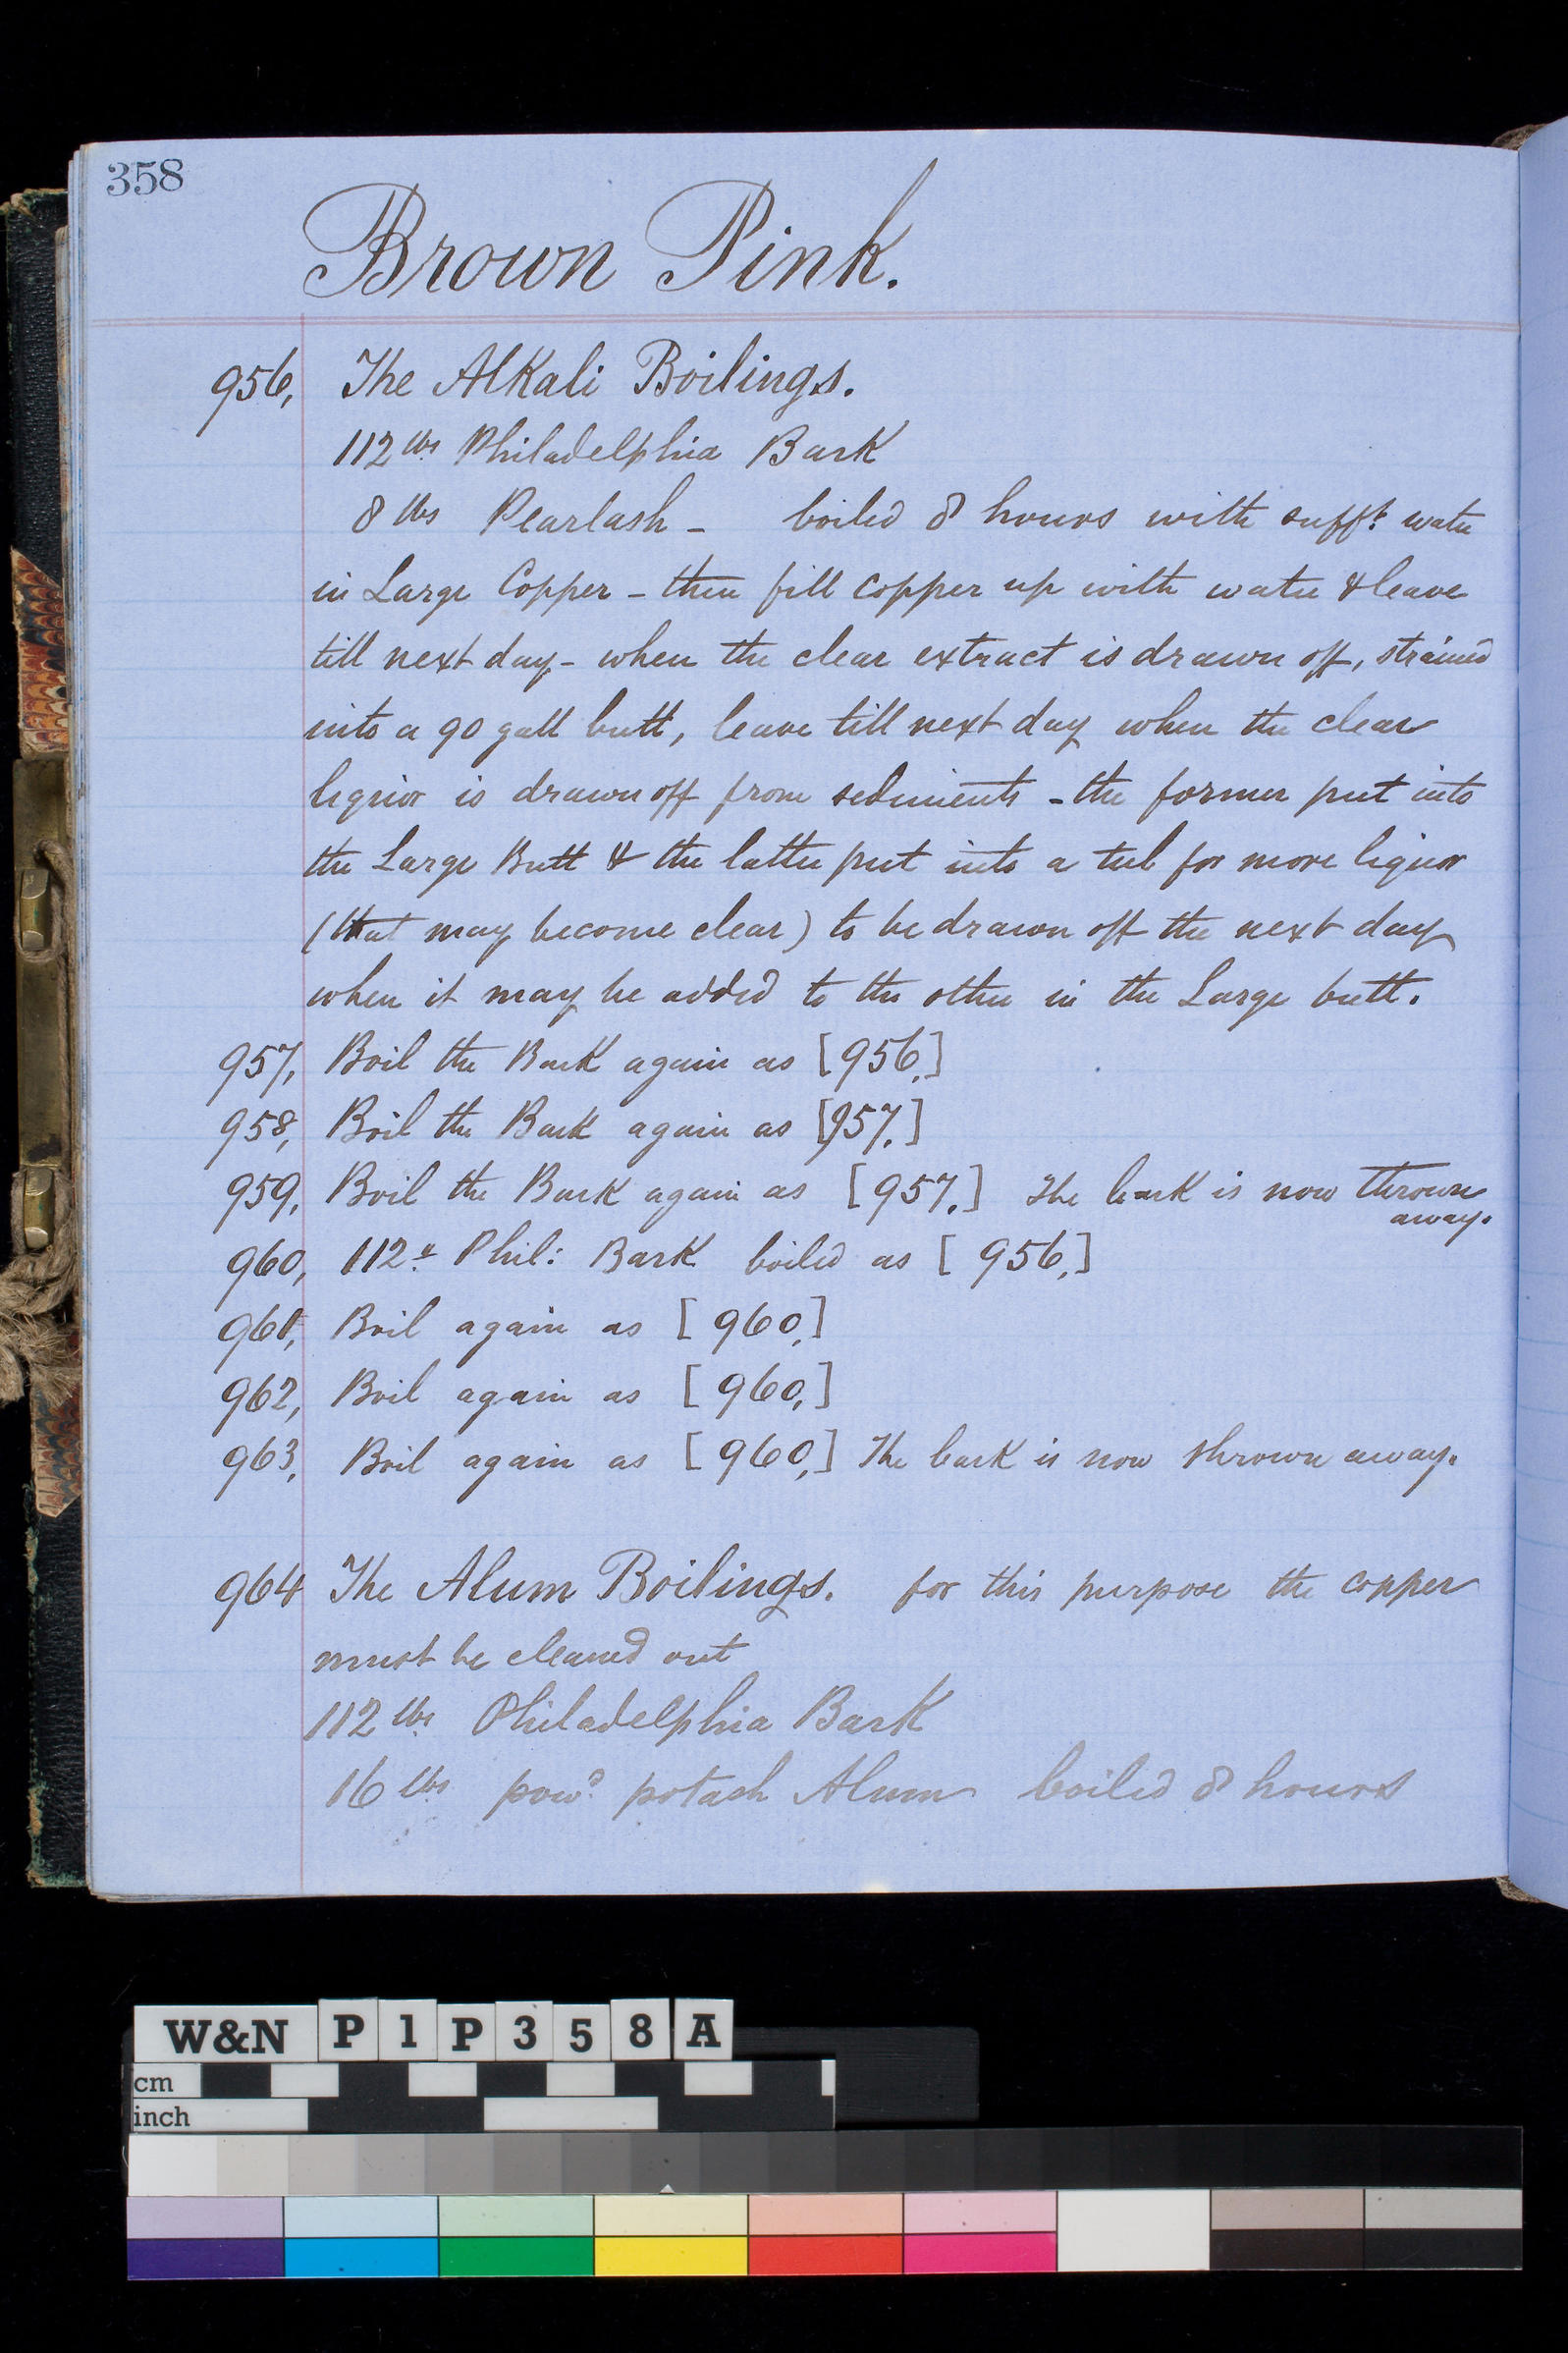 358
Brown Pink.
956, The Alkali Boilings.
112 lbs Philadelphia Bark
8 lbs Pearlash - boiled 8 hours with sufft. water
in Large Copper - then fill copper up with water & leave
till next day - when the clear extract is drawn off, strained
into a 90 gall butt, leave till next day when the clear
liquor is drawn off from sediments - the former put into
the Large Butt & the latter put into a tub for more liquor
(that may become clear) to be drawn off the next day
when it may be added to the other in the Large butt.
957, Boil the Bark again as [956,]
958, Boil the Bark again as [957,]
959, Boil the Bark again as [957,] The bark is now thrown
away.
960, 112 Phil: Bark boiled as [956,]
961, Boil again as [960,]
962, Boil again as [960,]
963, Boil again as [960,] The bark is now thrown away.
964 The Alum Boilings. for this purpose the copper
must be cleaned out
112 lbs Philadelphia Bark
16 lbs powd. potash Alum boiled 8 hours
W&N P1P358A
cm
inch